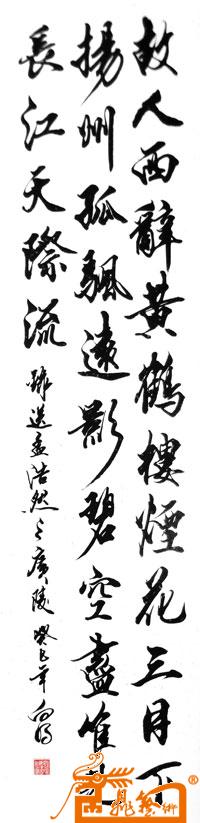 故人西辭黃鶴樓煙花三月下
揚州孤颿遠影碧空盡唯見
長江天際流
録送孟浩然之廣陵 癸巳年